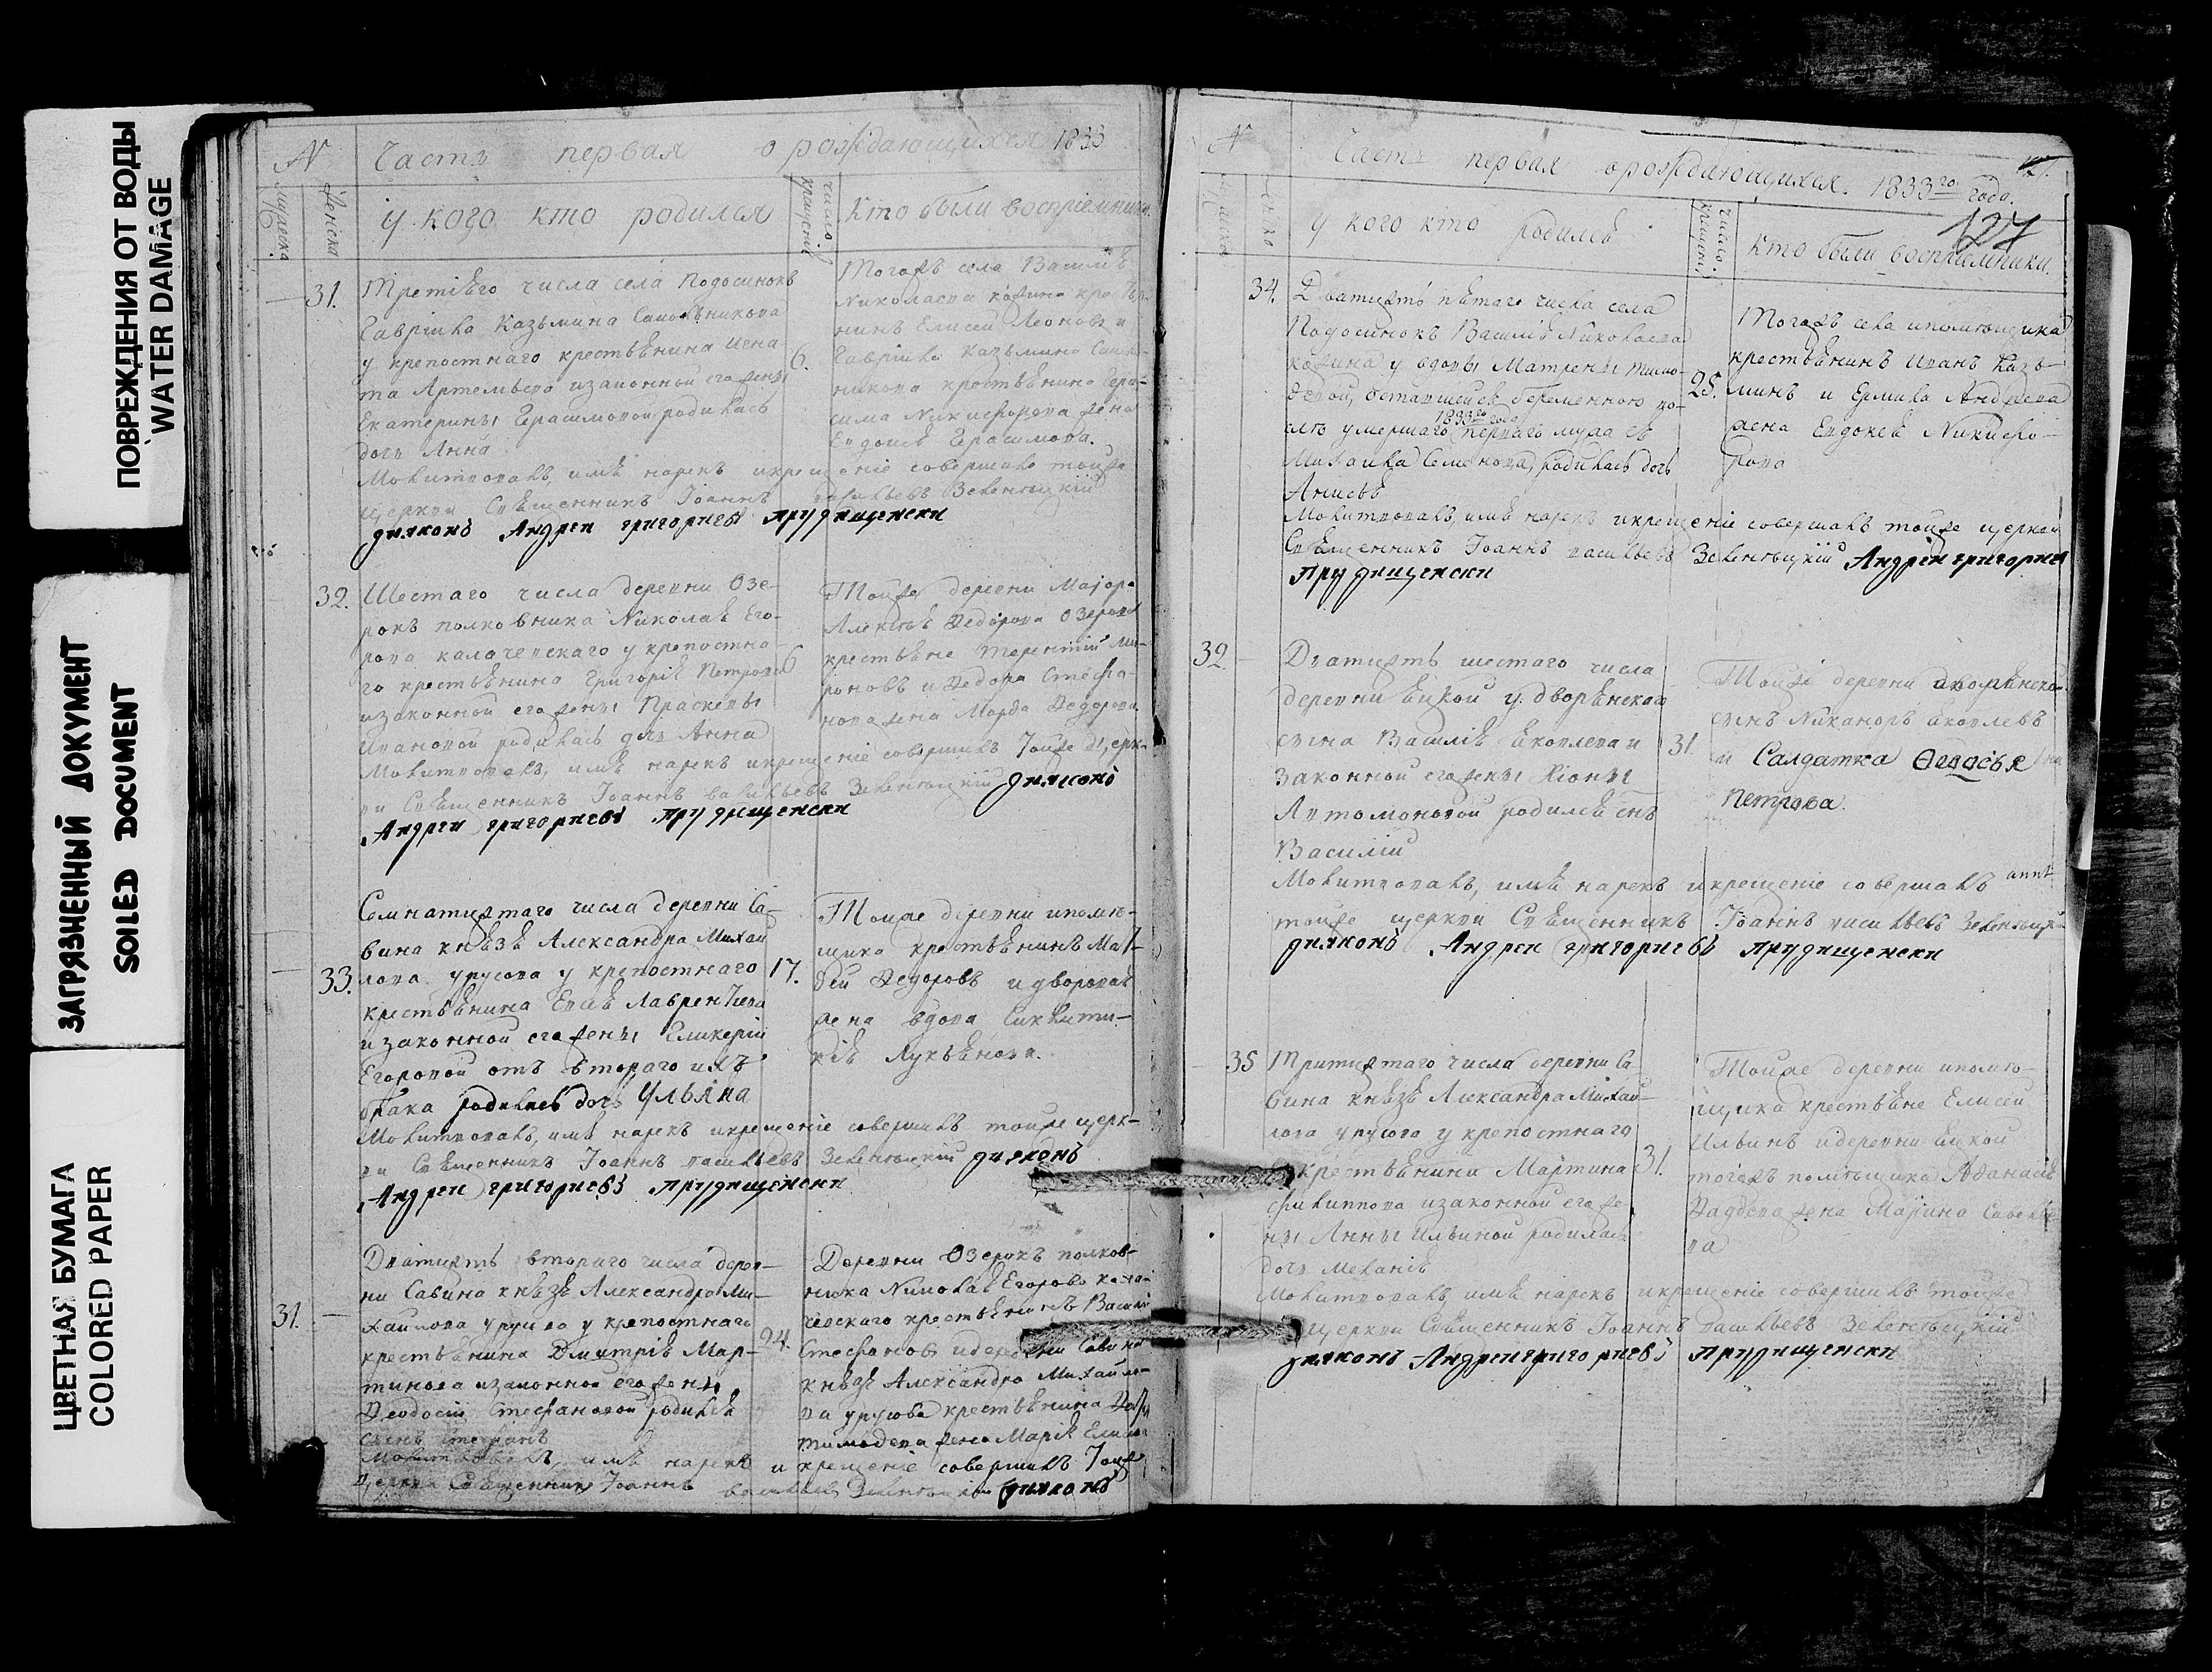 ПОВРЕЖДЕНИЯ ОТ ВОДЫ
WATER DAMAGE
ЗАГРЯЗНЕННЫЙ ДОКУМЕНТ
SOILED DOCUMENT
ЦВЕТНАЯ БУМАГА
COLORED PAPER
N Часть первая о рождающихся 1833
мужеска женска у кого кто родился число крещения кто были восприемники.
31. Третьяго числа села Подосинокъ
Гавріила Казьмина
у крепостнаго крестьянина Игна-
та Артемьева и законной его жены
Екатерины Герасимовой родилась
дочь Анна
6.
Тогожъ села Василія
Николаева
нинъ Елисей Леоновъ и
Гавріила Казьмина
крестьянина Гера-
сима Никифорова жена
Евдокія Герасимова.
Молитвовалъ, имя нарекъ и крещеніе совершилъ тойже
церкви Священникъ Іоаннъ Васильевъ
дияконъ Андреи григориевъ прудищенски
32. Шестаго числа деревни Озе-
рокъ полковника Николая Его-
рова калачевскаго у крепостна-
го крестьянина Григорія Петрова
и законной его жены Прасковьи
Ивановой родилась дочь Анна
6
Тойже деревни Маіора
Алексѣя Федорова Озерова
крестьяне Терентій Ми-
роновъ и Федора Стефа-
нова жена Марфа Федорова
Молитвовалъ, имя нарекъ и крещеніе совершилъ тойже церк-
ви Священникъ Іоаннъ Васильевъ дияконъ
Андреи григориевъ прудищенски
33. Семнатцатаго числа деревни Са-
вина князя Александра Михаи-
лова урусова у крепостнаго
крестьянина Лаврентіева
и законной его жены Гликеріи
Егоровой отъ втораго ихъ
брака родилась дочь Ульяна
17.
Тойже деревни и поме-
щика крестьянинъ Мат-
фей Федоровъ и дворовая
жена вдова
Лукьянова.
Молитвовалъ, имя нарекъ и крещеніе совершилъ тойже церк-
ви Священникъ Іоаннъ Васильевъ дияконъ
Андреи григориевъ прудищенски
31. Дватцать втораго числа дерев-
ни Савина князя Александра Ми-
хаилова урусова у крепостнаго
крестьянина Дмитрія Мар-
тинова и законной его жены
Феодосіи Стефановой родился
сынъ Стефанъ
24.
Деревни Озерокъ полков-
ника Николая Егорова кала-
чевскаго крестьянинъ Василій
Стефановъ и деревни Савина
князя Александра Михайло-
ва урусова крестьянина
жена Марія
Молитвовалъ, имя нарекъ и крещеніе совершилъ тойже
церкви Священникъ Іоаннъ дияконъ
N Часть первая о рождающихся. 1833го года.
127
у кого кто родился число крещения кто были восприемники.
34. Дватцать пятаго числа села
Подосинокъ Василія Николаева
у вдовы Матрены Тимо-
феевой, оставшейся беременною по-
1833го года
слѣ умершаго перваго мужа ея
Михаила Семенова, родилась дочь
Анисья
25.
Тогожъ села и помещика
крестьянинъ Иванъ Казь-
минъ и Ермила Андреева
жена Евдокія Никифо-
рова
Молитвовалъ, имя нарекъ и крещеніе совершалъ тойже церкви
Священникъ Іоаннъ Васильевъ Андреи григориев
прудищенски
32 Дватцать шестаго числа
деревни у дворянскаго
сына Василія Яковлева и
законной его жены Хіоніи
Автомоновой родился сынъ
Василій
31.
Тойже деревни дворянской
сынъ Никаноръ Яковлевъ
и Салдатка Федосья
Петрова.
Молитвовалъ, имя нарекъ и крещеніе совершалъ
тойже церкви Священникъ Іоаннъ Васильевъ
дияконъ Андреи григориевъ прудищенски
35 Тритцатаго числа деревни Са-
вина князя Александра Михай-
лова урусова у крепостнаго
крестьянина Мартина
Филиппова и законной его же-
ны Анны Ильиной родилась
дочь Меланія
31.
Тойже деревни и поме-
щика крестьяне Елисей
Ильинъ и деревни
тогожъ помещика Афанасія
жена Марина
Молитвовалъ, имя нарекъ и крещеніе совершилъ тойже
церкви Священникъ Іоаннъ Васильевъ
дияконъ Андреи григориевъ прудищенски